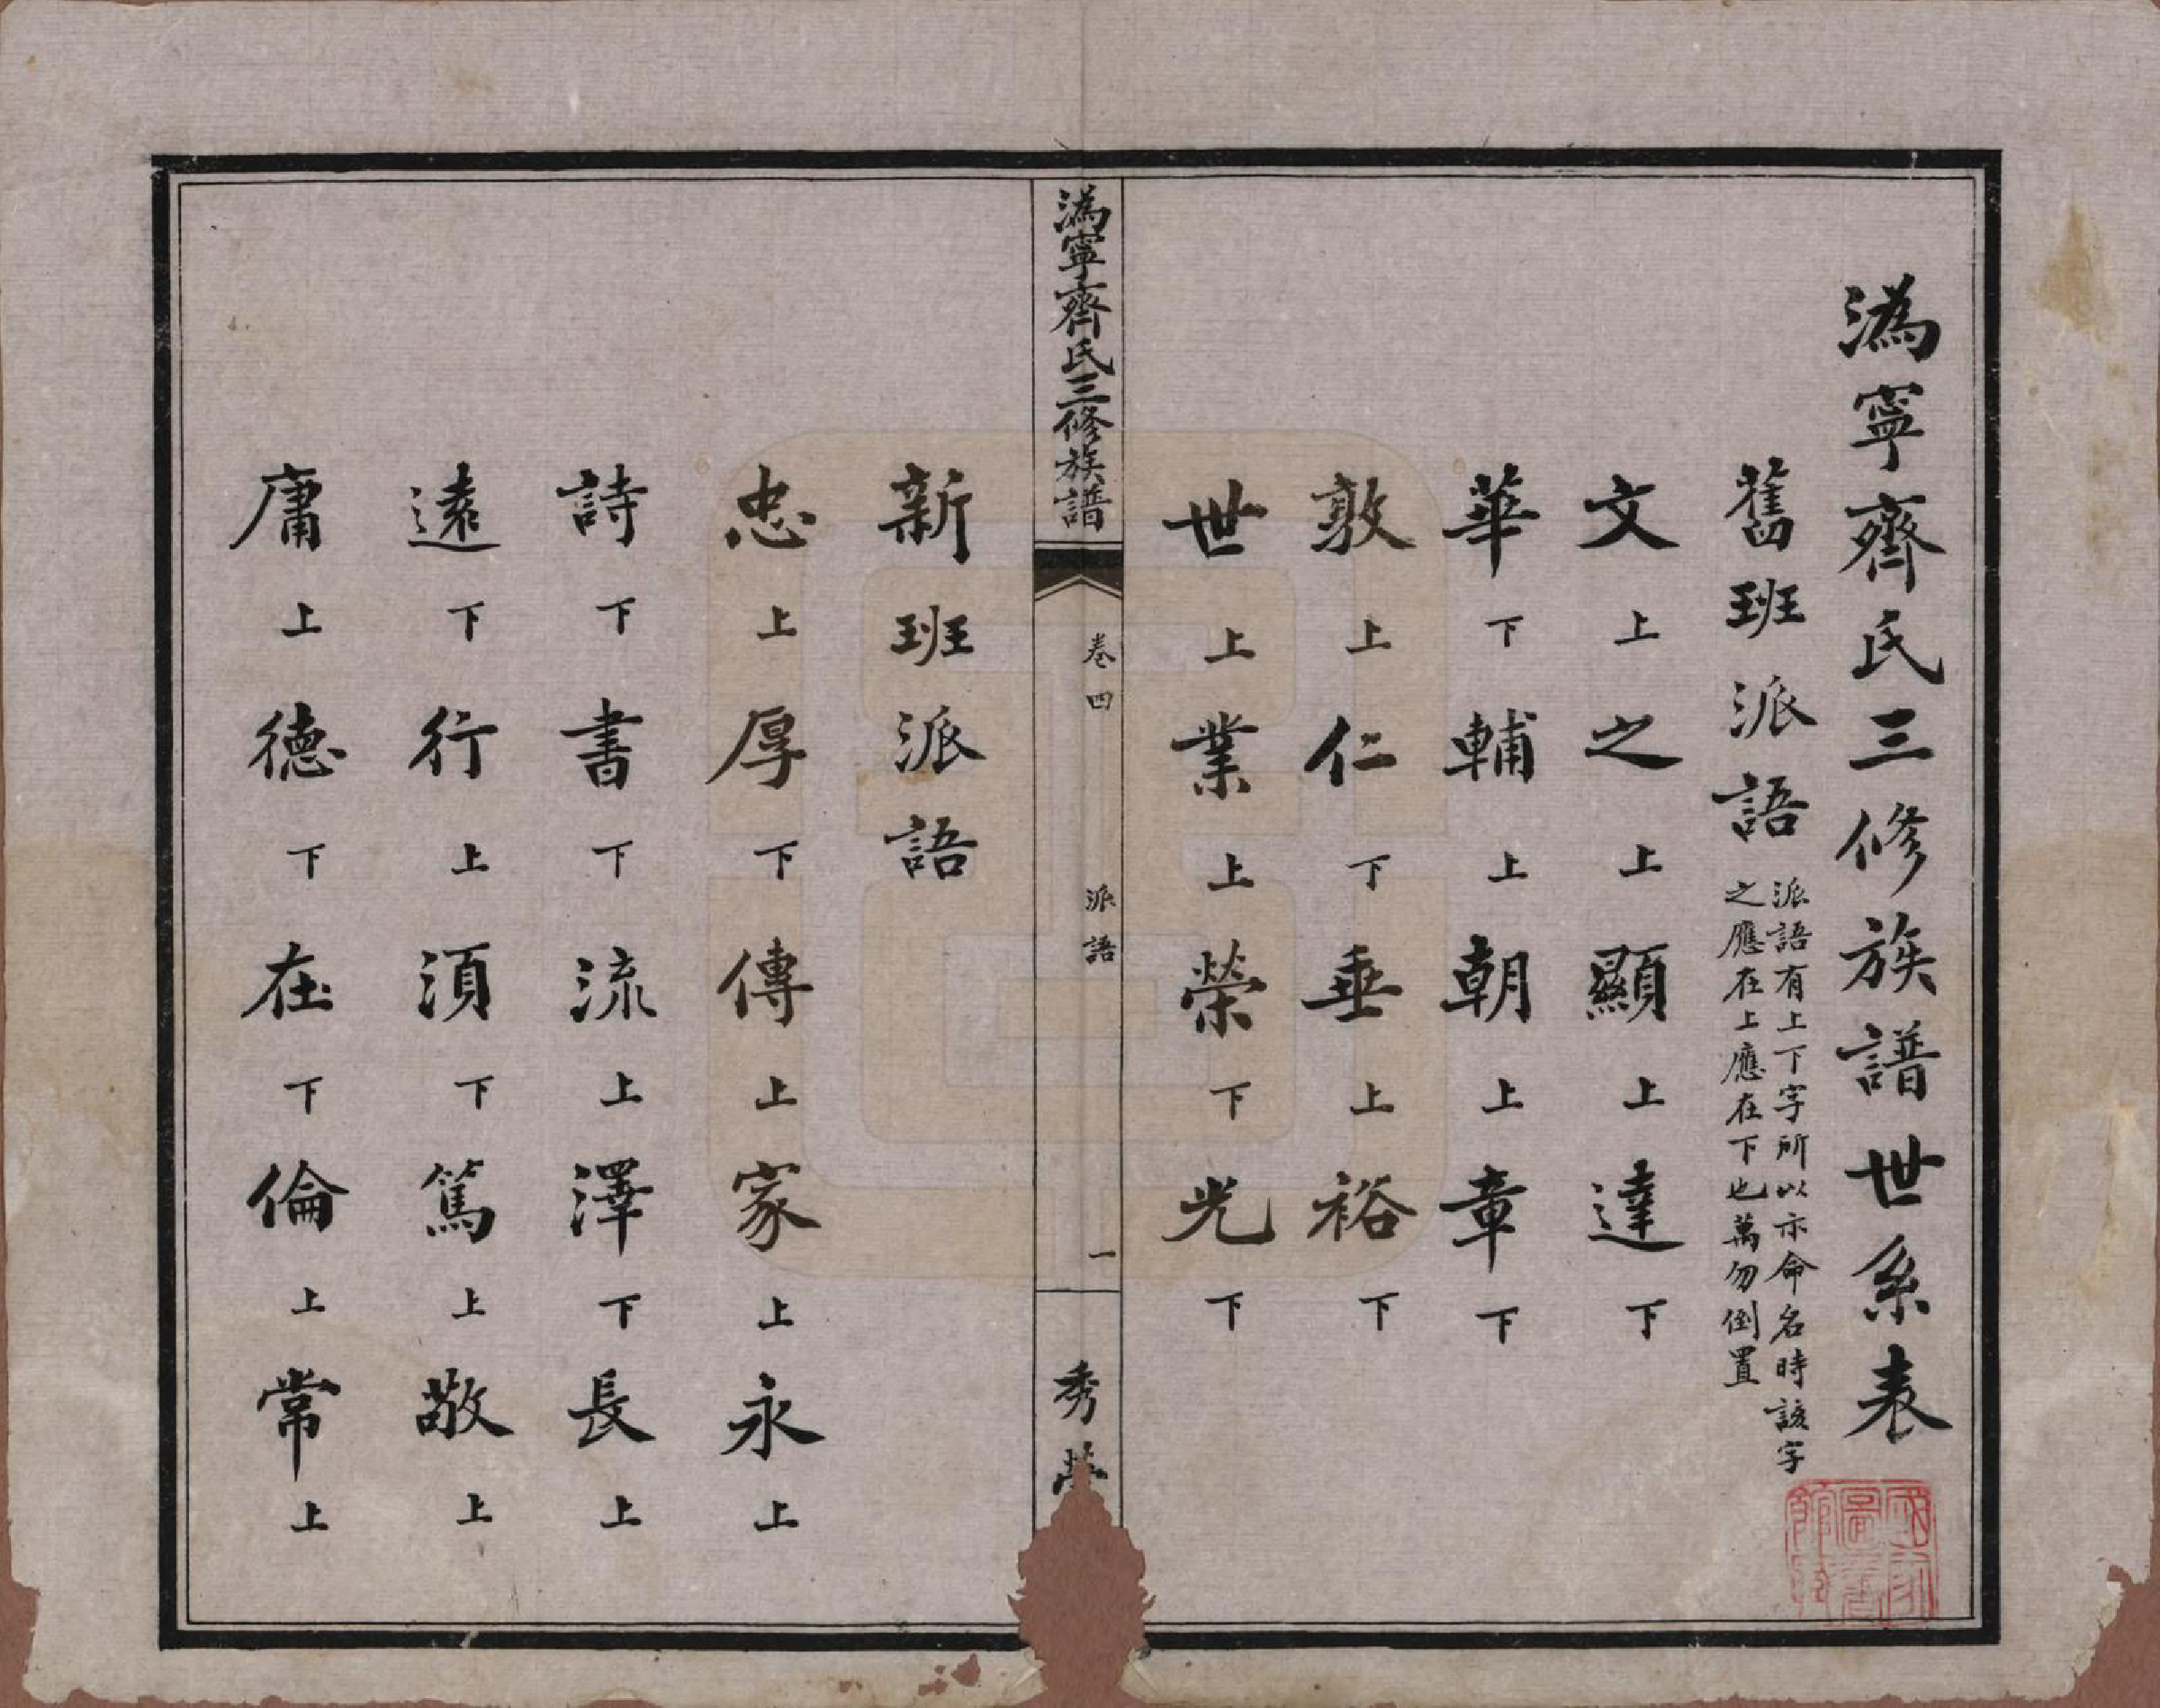 溈寧齊氏三修族譜世系表
舊班派語
派語有上下字所以示命名時該字
之應在上應在下也萬勿倒置
文上之上顯上達下
華下輔上朝上章下
敦上仁下垂上裕下
世上業上榮下光下
溈寧齊氏三修族譜
卷四
派語
一
秀
新班派語
忠上厚下傳上家上永上
詩下書下流上澤下長上
遠下行上須下篤上敬上
庸上德下在下倫上常上